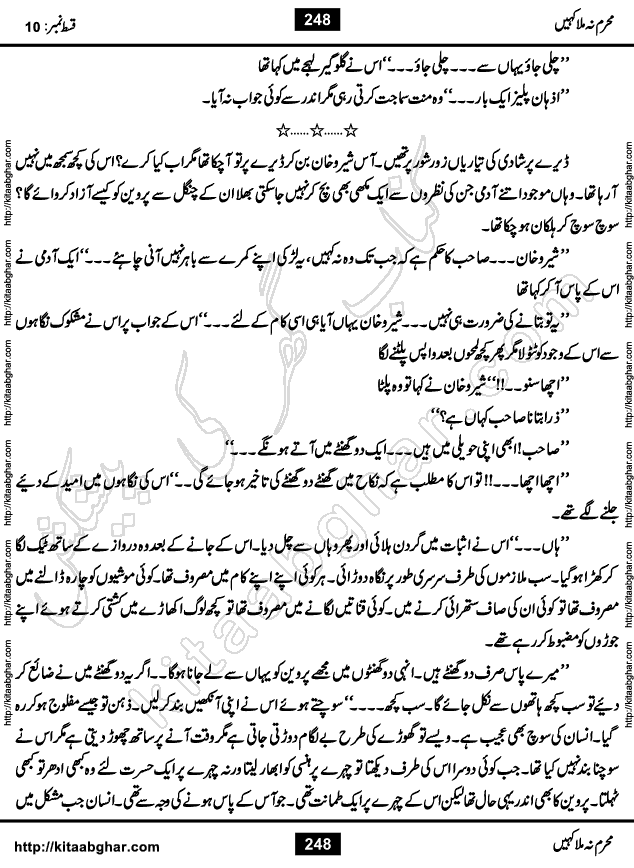 محرم نہ ملا کہیں
248
قسط نمبر: 10
”چلی جاؤ یہاں سے۔۔۔ چلی جاؤ۔۔۔“ اس نے گلوگیر لہجے میں کہا تھا
”اذہان پلیز ایک بار۔۔۔“ وہ منت سماجت کرتی رہی مگر اندر سے کوئی جواب نہ آیا۔
☆......☆......☆
ڈیرے پر شادی کی تیاریاں زور شور پر تھیں۔ آس شیرو خان بن کر ڈیرے پر تو آ چکا تھا مگر اب کیا کرے؟ اس کی کچھ سمجھ میں نہیں
آرہا تھا۔ وہاں موجود اتنے آدمی جن کی نظروں سے ایک مکھی بھی بچ کر نہیں جاسکتی بھلا ان کے چنگل سے پروین کو کیسے آزاد کروائے گا؟
سوچ سوچ کر ہلکان ہو چکا تھا۔
”شیرو خان۔۔۔ صاحب کا حکم ہے کہ جب تک وہ نہ کہیں، یہ لڑکی اپنے کمرے سے باہر نہیں آنی چاہئے۔۔۔“ ایک آدمی نے
اس کے پاس آکر کہا تھا
”یہ تو بتانے کی ضرورت ہی نہیں۔۔۔ شیرو خان یہاں آیا ہی اسی کام کے لئے۔۔۔“ اس کے جواب پر اس نے مشکوک نگاہوں
سے اس کے وجود کو ٹٹولا مگر پھر کچھ لمحوں بعد واپس پلٹنے لگا
”اچھا سنو۔۔!!“ شیرو خان نے کہا تو وہ پلٹا
”ذرا بتانا صاحب کہاں ہے؟“
”صاحب! ابھی اپنی حویلی میں ہیں۔۔۔ ایک دو گھنٹے میں آتے ہونگے۔۔۔“
”اچھا اچھا۔۔۔!! تو اس کا مطلب ہے کہ نکاح میں گھنٹے دو گھنٹے کی تاخیر ہو جائے گی۔۔“ اس کی نگاہوں میں امید کے دیئے
جلنے لگے تھے۔
”ہاں۔۔۔“ اس نے اثبات میں گردن ہلائی اور پھر وہاں سے چل دیا۔ اس کے جانے کے بعد وہ دروازے کے ساتھ ٹیک لگا
کر کھڑا ہوگیا۔ سب ملازموں کی طرف سرسری طور پر نگاہ دوڑائی۔ ہر کوئی اپنے اپنے کام میں مصروف تھا۔ کوئی مویشیوں کو چارہ ڈالنے میں
مصروف تھا تو کوئی ان کی صاف ستھرائی کرنے میں۔ کوئی قناتیں لگانے میں مصروف تھا تو کچھ لوگ اکھاڑے میں کشتی کرتے ہوئے اپنے
جوڑوں کو مضبوط کر رہے تھے۔
”میرے پاس صرف دو گھنٹے ہیں۔ انہی دو گھنٹوں میں مجھے پروین کو یہاں سے لے جانا ہوگا۔۔ اگر یہ دو گھنٹے میں نے ضائع کر
دیئے تو سب کچھ ہاتھوں سے نکل جائے گا۔ سب کچھ۔۔۔۔“ سوچتے ہوئے اس نے اپنی آنکھیں بند کر لیں۔ ذہن تو جیسے مفلوج ہو کر رہ
گیا۔ انسان کی سوچ بھی عجیب ہے۔ ویسے تو گھوڑے کی طرح بے لگام دوڑتی جاتی ہے مگر وقت آنے پر ساتھ چھوڑ دیتی ہے مگر اس نے
سوچنا بند نہیں کیا تھا۔ جب کوئی دوسرا اس کی طرف دیکھتا تو چہرے پر ہنسی کو ابھار لیتا ورنہ چہرے پر ایک حسرت لئے وہ کبھی ادھر تو کبھی
ٹہلتا۔ پروین کا بھی اندر یہی حال تھا لیکن اس کے چہرے پر ایک طمانت تھی۔ جو آس کے پاس ہونے کی وجہ سے تھی۔ انسان جب مشکل میں
http://kitaabghar.com
248
محرم نہ ملا کہیں
http://kitaabghar.com
http://kitaabghar.com
http://kitaabghar.com
http://kitaabghar.com
http://kitaabghar.com
http://kitaabghar.com
http://kitaabghar.com
http://kitaabghar.com
http://kitaabghar.com
http://kitaabghar.com
http://kitaabghar.com
http://kitaabghar.com
کتاب گھر کی پیشکش
kitaabghar.com